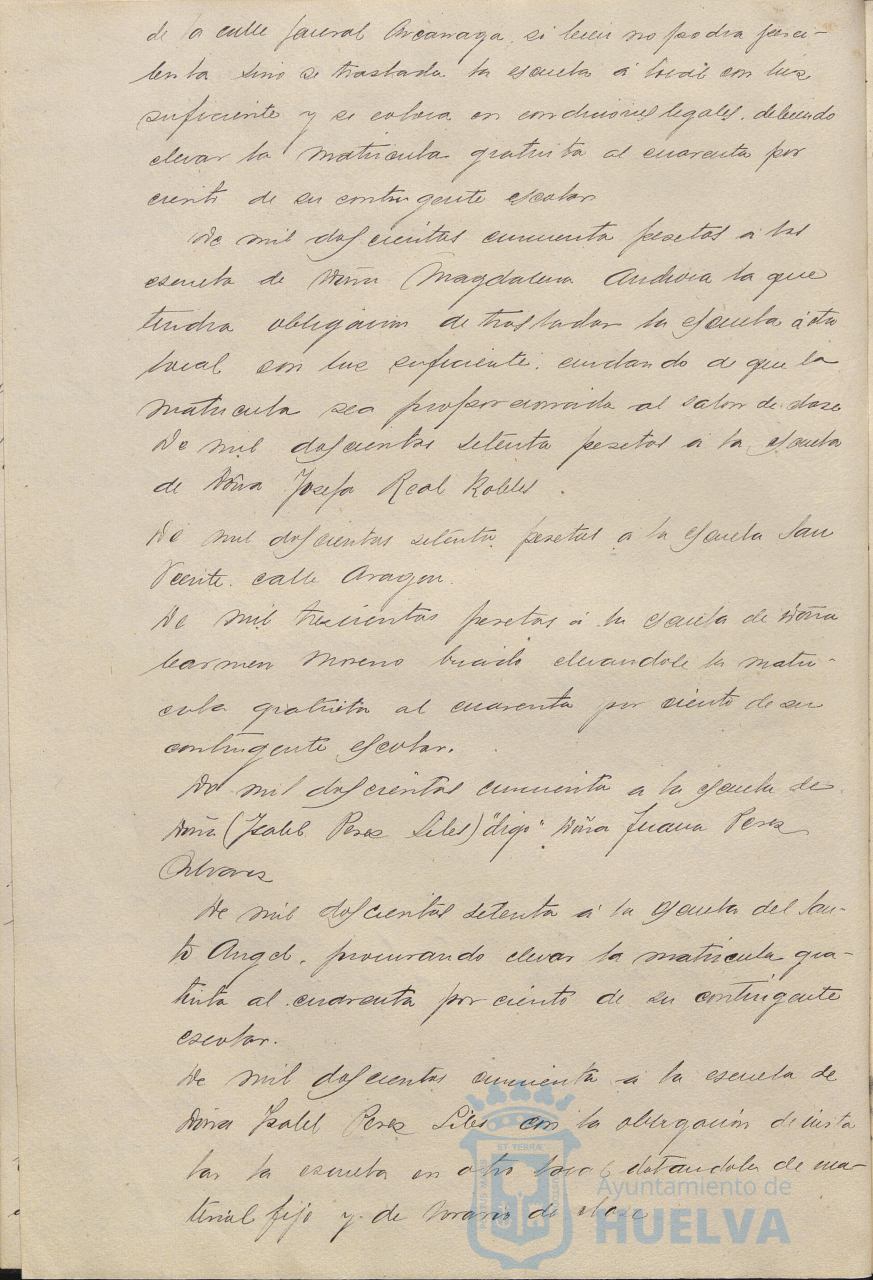 de la calle General Arcarraga, si bien no podra perci-
birla sino se traslada la escuela á local con luz
suficiente y se coloca en condiciones legales, debiendo
elevar la matricula gratuita al cuarenta por
ciento de su contingente escolar
De mil doscientas cincuenta pesetas a la
escuela de Doña Magdalena la que
tendra obligación de trasladar la escuela á otro
local con luz suficiente, cuidando de que la
matricula sea proporcionada al salon de clase
De mil doscientas setenta pesetas a la escuela
de Doña Josefa Real Robles.
De mil doscientas setenta pesetas a la escuela San
Vicente. calle Aragon.
De mil trescientas pesetas á la escuela de Doña
Carmen Moreno elevandole la matri-
cula gratuita al cuarenta por ciento de su
contingente escolar.
De mil doscientas cincuenta a la escuela de
Doña (Isabel Perez Liles) "digo" Doña Juana Perez
Alvarez
De mil doscientas setenta á la escuela del San-
to Angel, procurando elevar la matricula gra-
tuita al cuarenta por ciento de su contingente
escolar.
De mil doscientas cincuenta a la escuela de
Doña Isabel Perez Liles con la obligación de insta
lar la escuela en otro local dotandola de ma-
terial fijo y de horario de clase
ET TERRÆ
Ayuntamiento de
HUELVA